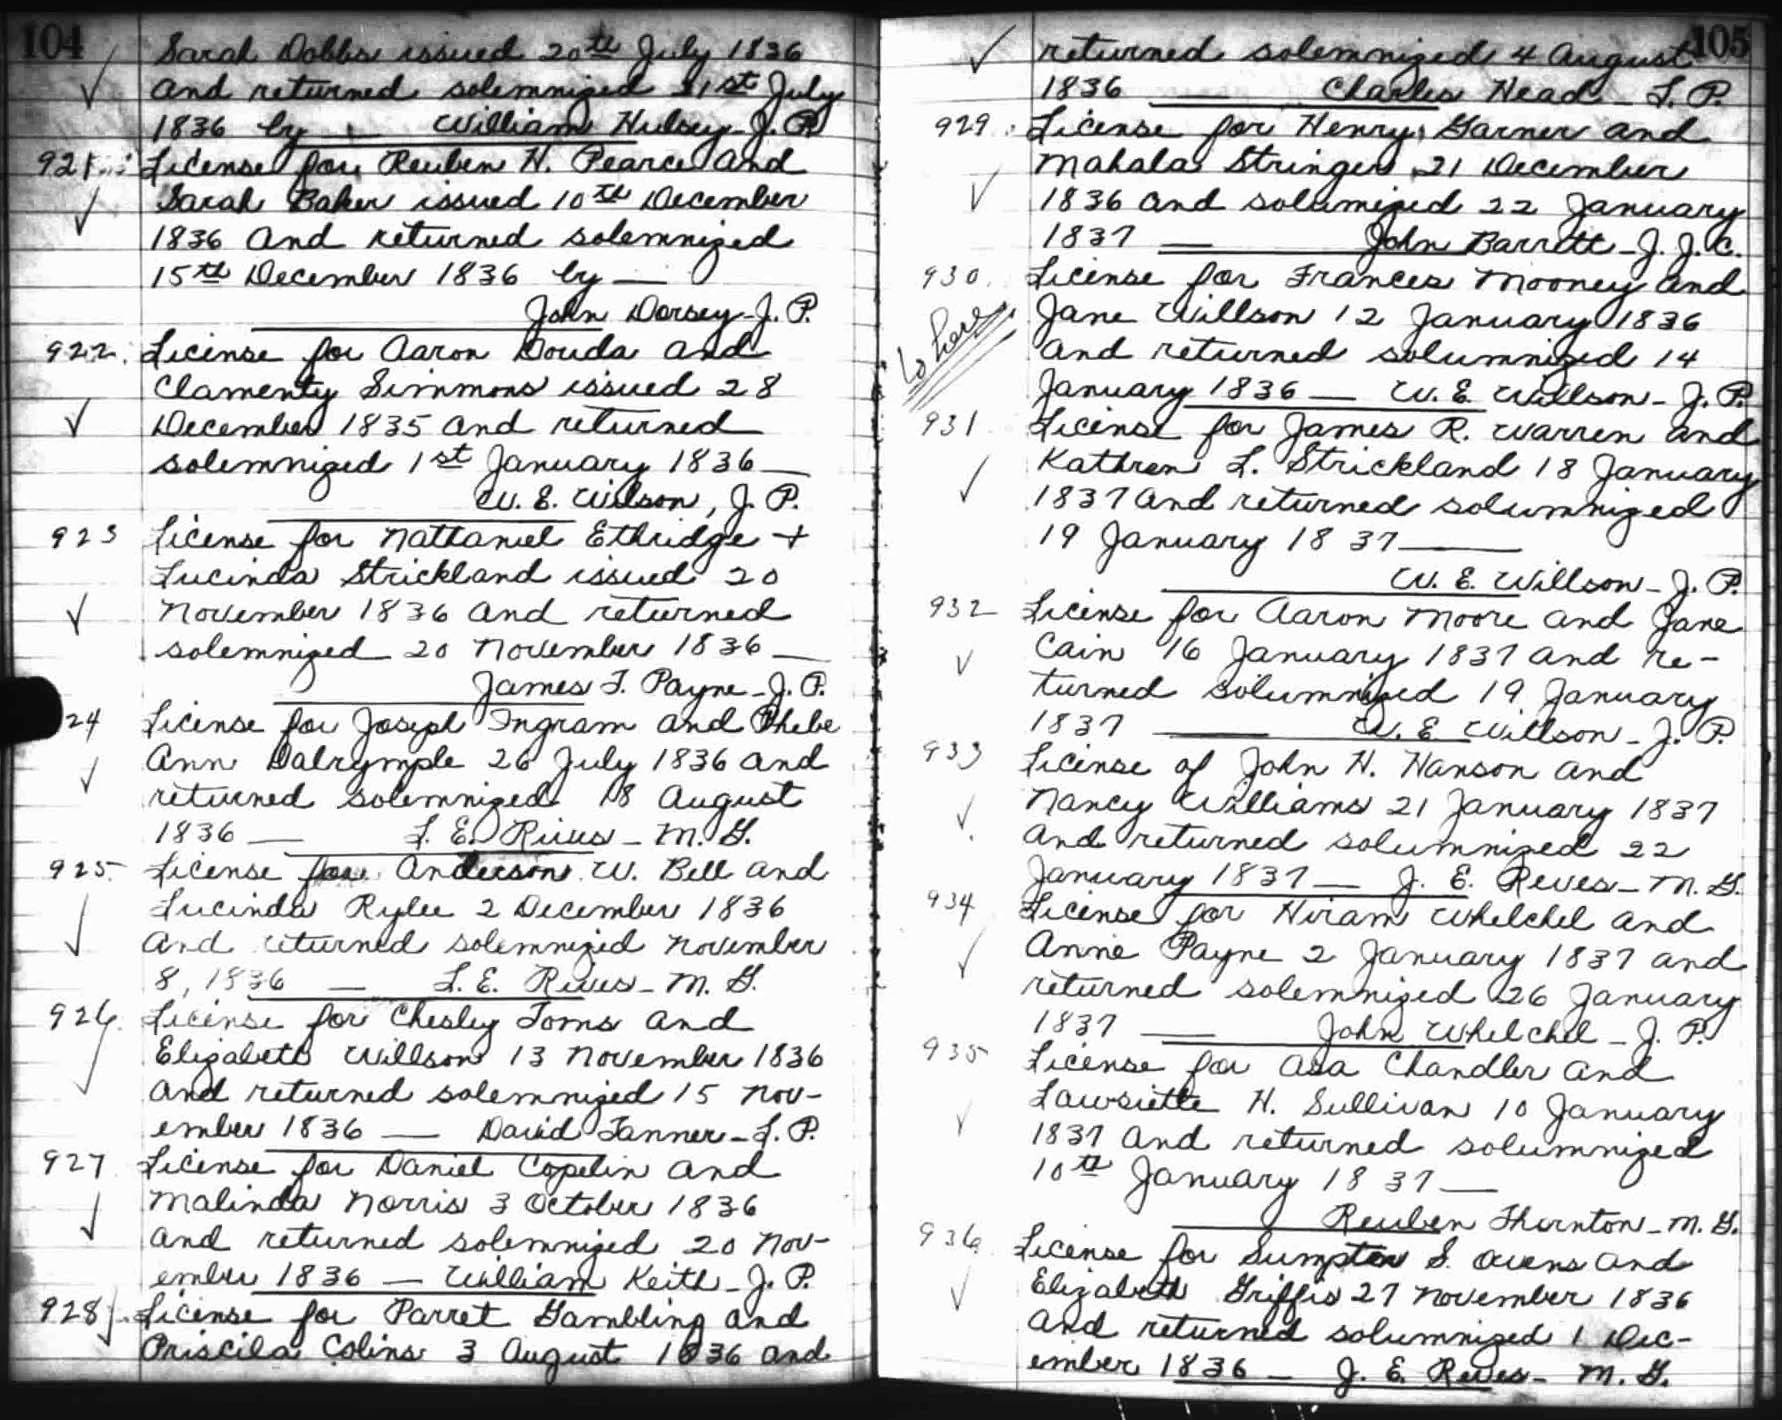 104
Sarah Dobbs issued 20th July 1836
and returned solemnized 21st July
1836 by — William Hulsey J. P.
921. License for Reuben H. Pearce and
Sarah Baker issued 10th December
1836 and returned solemnized
15th December 1836 by —
John Dorsey - J. P.
922. License for Aaron Douda and
Clamenty Simmons issued 28
December 1835 and returned
solemnized 1st January 1836 —
W. E. Wilson, J. P.
923 License for Nathaniel Ethridge +
Lucinda Strickland issued 20
November 1836 and returned
solemnized 20 November 1836 —
James T. Payne - J. P.
24 License for Joseph Ingram and Phebe
Ann Dalrymple 26 July 1836 and
returned solemnized 18 August
1836 — E. - M. G.
925 License for Anderson W. Bell and
Lucinda Rylee 2 December 1836
and returned solemnized November
8, 1836 — E. - M. G.
926. License for Chesley Toms and
Elizabeth Willson 13 November 1836
and returned solemnized 15 Nov-
ember 1836 — David Tanner - J. P.
927 License for Daniel Copelin and
Malinda Norris 3 October 1836
and returned solemnized 20 Nov-
ember 1836 — William Keith - J. P.
928. License for Parret Gambling and
Priscila Colins 3 August 1836 and
105
returned solemnized 4 August
1836 — Charles Head - J. P.
929. License for Henry Garner and
Mahala Stringer 21 December
1836 and solumized 22 January
1837 — John Barrett - J. J. C.
930. License for Frances Mooney and
Jane Willson 12 January 1836
to here
and returned solumnized 14
January 1836 — W. E. Willson - J. P.
931 License for James R. Warren and
Kathren L. Strickland 18 January
1837 and returned solumnized
19 January 1837 —
W. E. Willson - J. P.
932 License for Aaron Moore and Jane
Cain 16 January 1837 and re-
turned solumnized 19 January
1837 — W. E. Willson - J. P.
933 License of John H. Hanson and
Nancy Williams 21 January 1837
and returned solumnized 22
January 1837 — J. E. Reves - M. G.
934 License for Hiram Whelchel and
Anne Payne 2 January 1837 and
returned solemnized 26 January
1837 — John Whelchel - J. P.
935 License for Asa Chandler and
Lawsiette H. Sullivan 10 January
1837 and returned solumnized
10th January 1837 —
Reuben Thornton - M. G.
936. License for Sumpter S. Owens and
Elizabeth Griffis 27 November 1836
and returned solumnized 1 Dec-
ember 1836 — J. E. Reves - M. G.